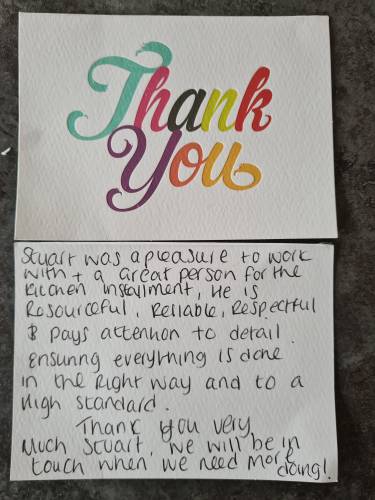 Thank
You
Stuart was a pleasure to work
with + a great person for the
kitchen installment, He is
Resourceful, Reliable, Respectful
& pays attention to detail.
ensuring everything is done
in the Right way and to a
High standard.
Thank you very
Much Stuart, we will be in
touch when we need more
doing!